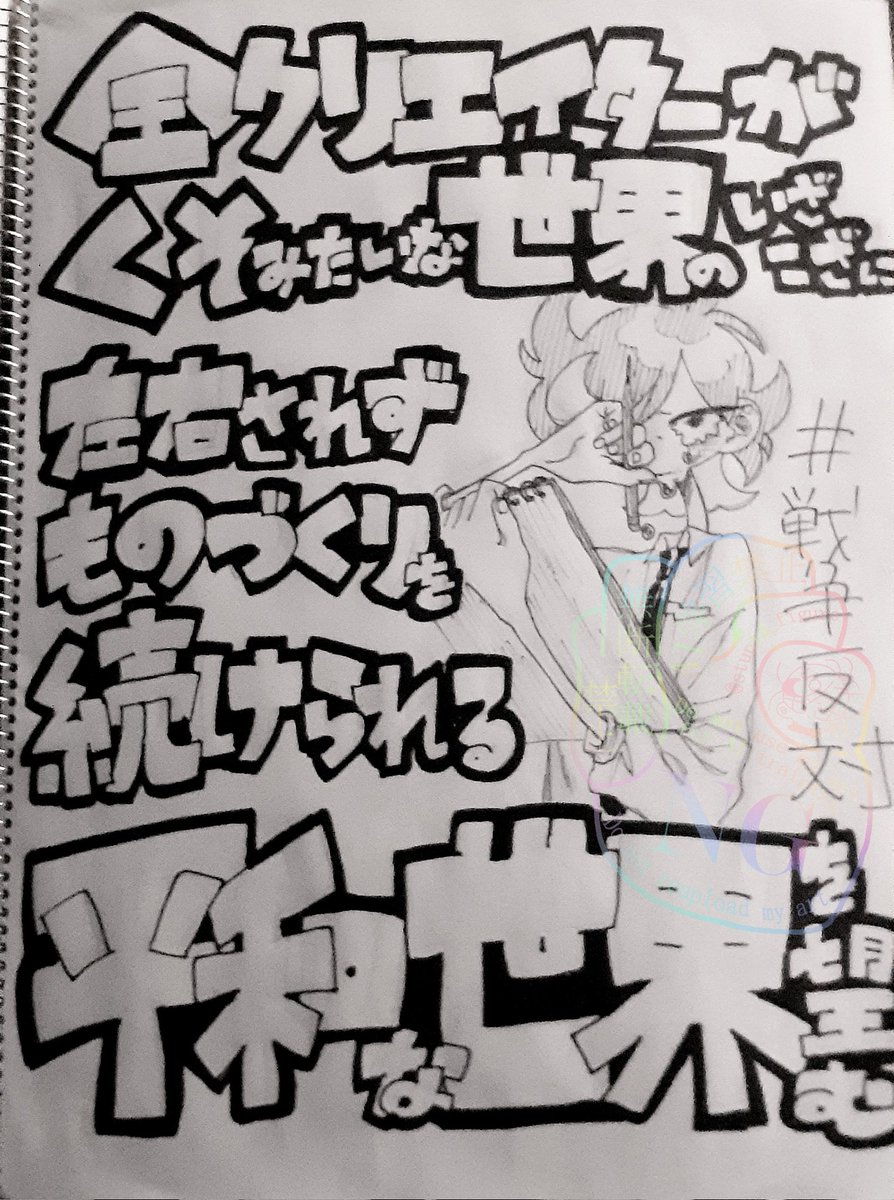 全クリエイターが
くそみたいな世界のいざこざに
左右されず
ものづくりを
続けられる
平和な世界を望む
#戦争反対
NG
upload my art